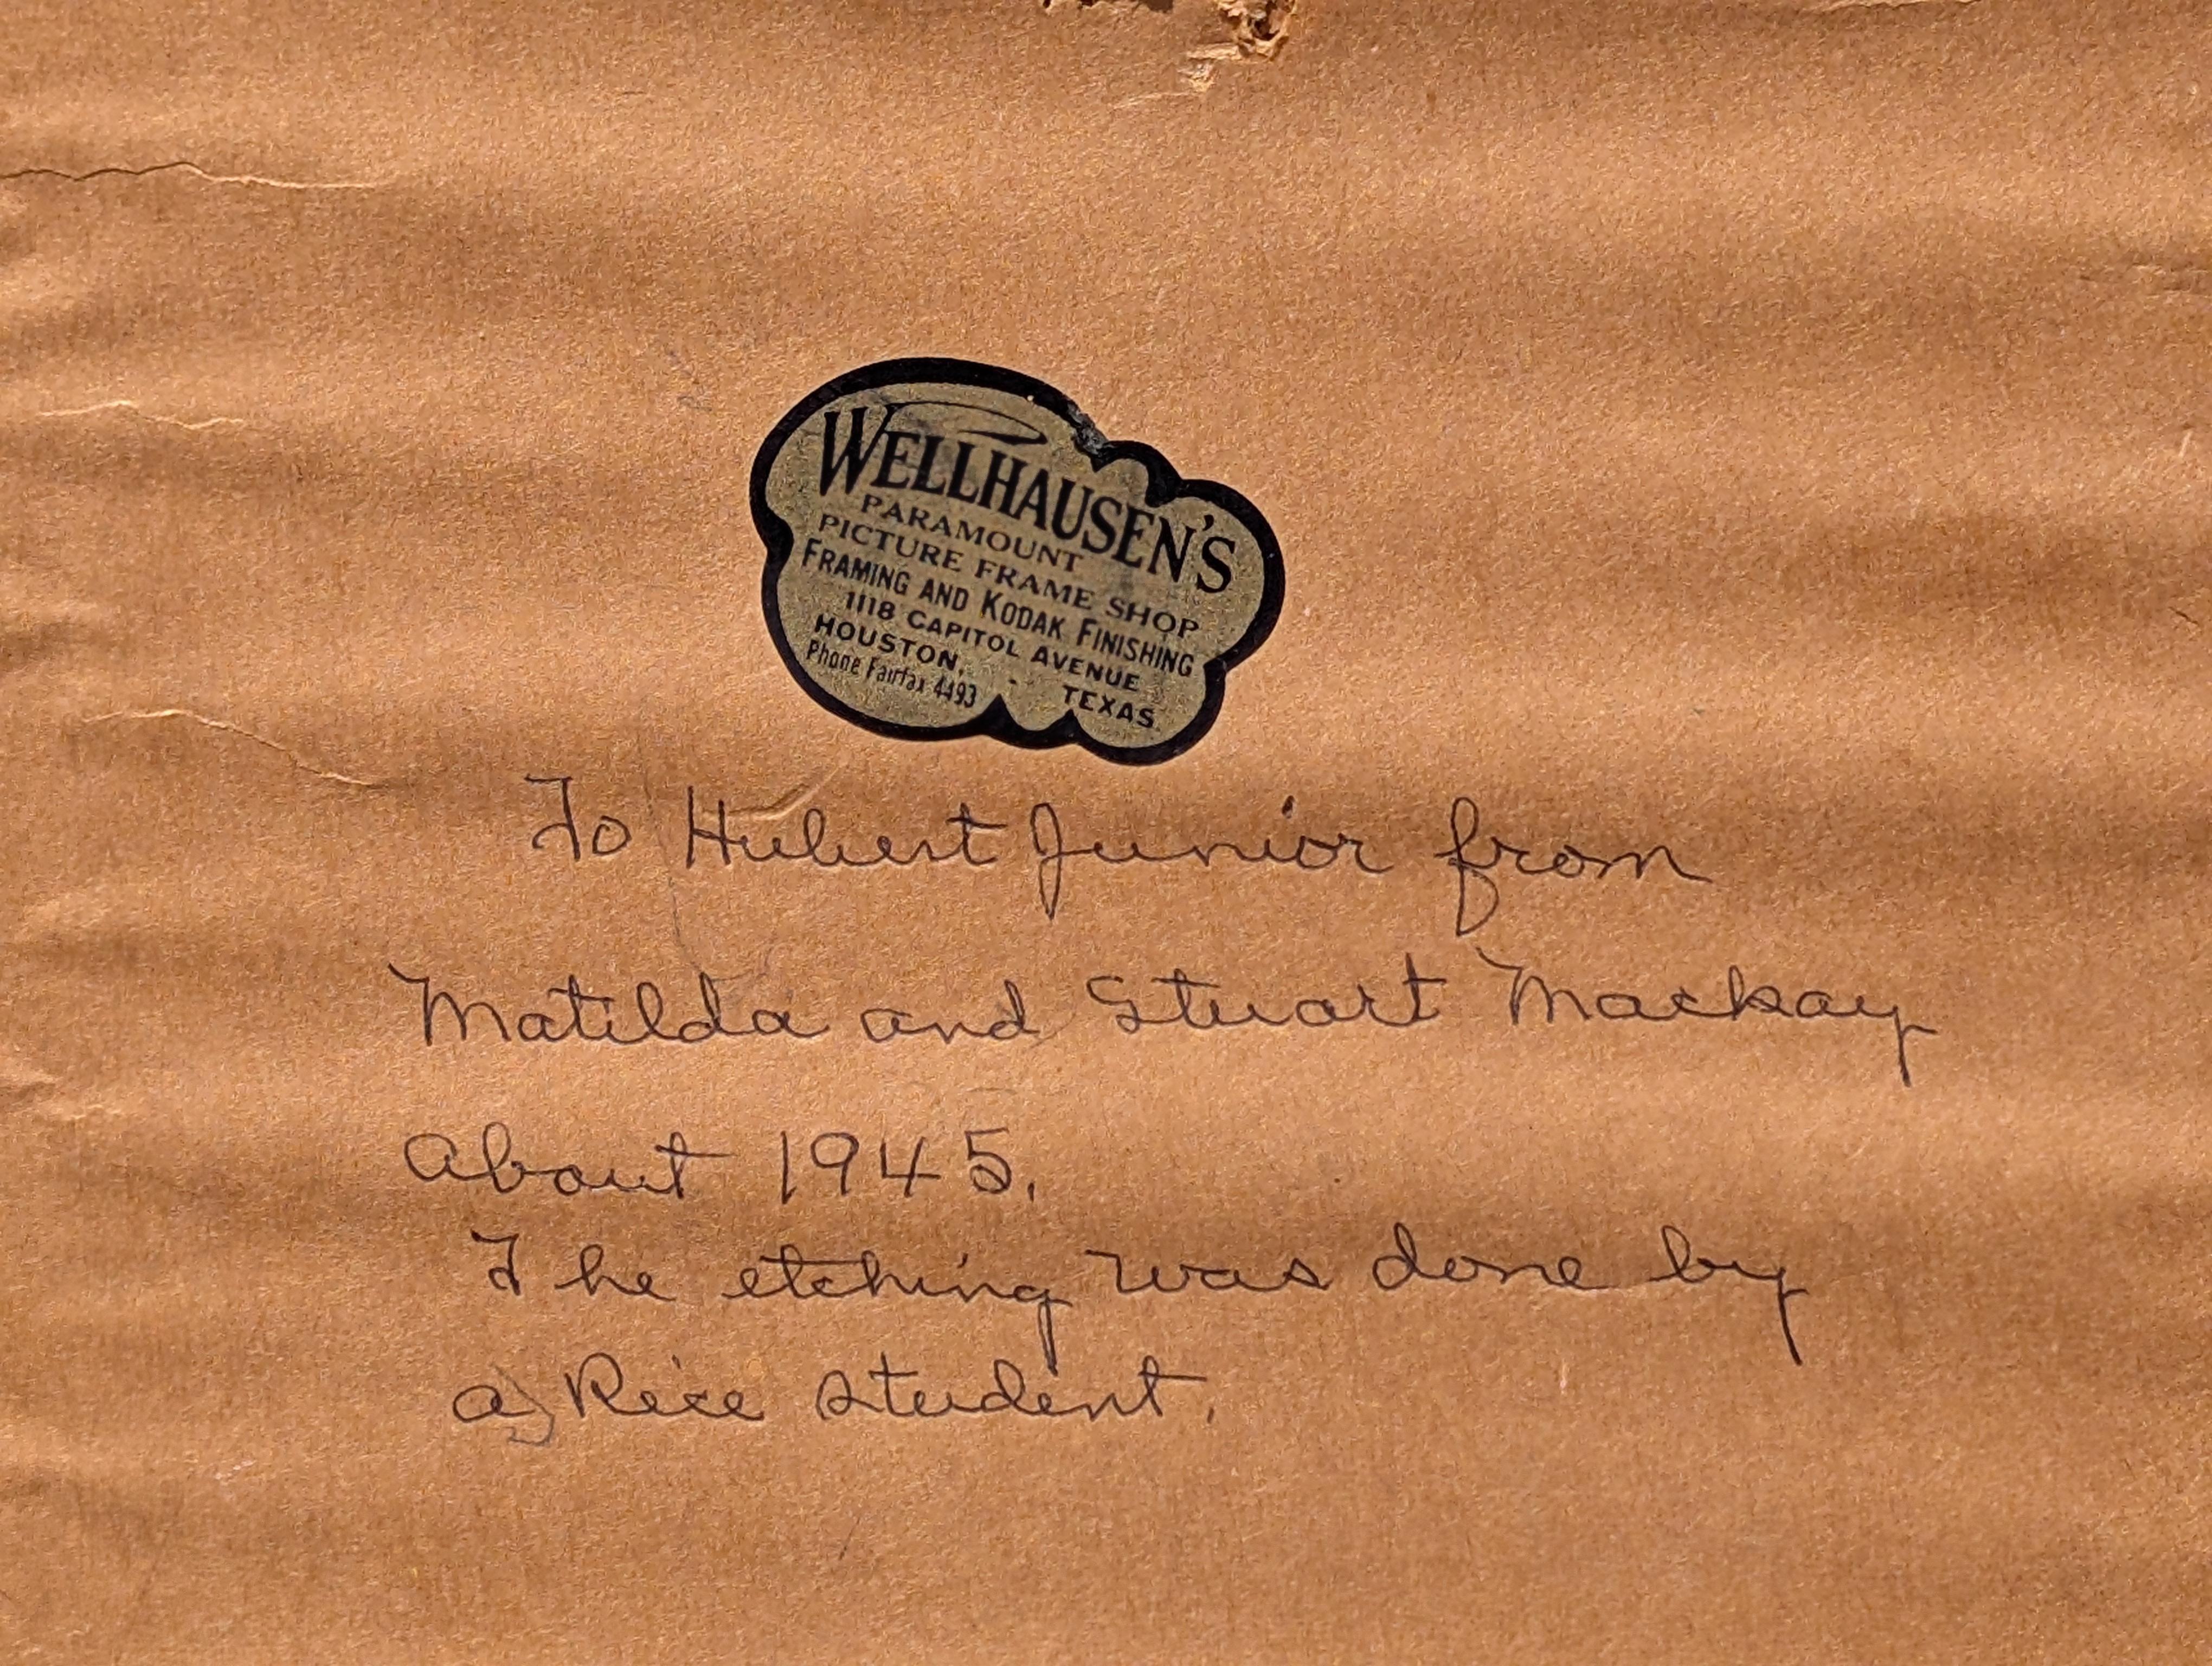 WELLHAUSEN'S
PARAMOUNT
PICTURE FRAME SHOP
FRAMING AND KODAK FINISHING
1118 CAPITOL AVENUE
HOUSTON, - TEXAS.
Phone Fairfax 4493
To Hubert Junior from
Matilda and Stuart Mackay
about 1945.
The etching was done by
a Rice student.